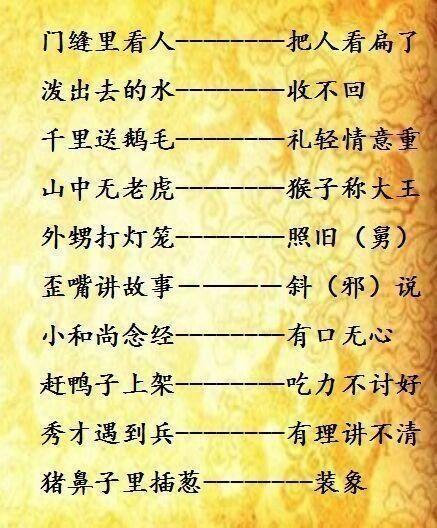 门缝里看人————————把人看扁了
泼出去的水————————收不回
千里送鹅毛————————礼轻情意重
山中无老虎————————猴子称大王
外甥打灯笼————————照旧（舅）
歪嘴讲故事—————斜（邪）说
小和尚念经————————有口无心
赶鸭子上架————————吃力不讨好
秀才遇到兵————————有理讲不清
猪鼻子里插葱————————装象